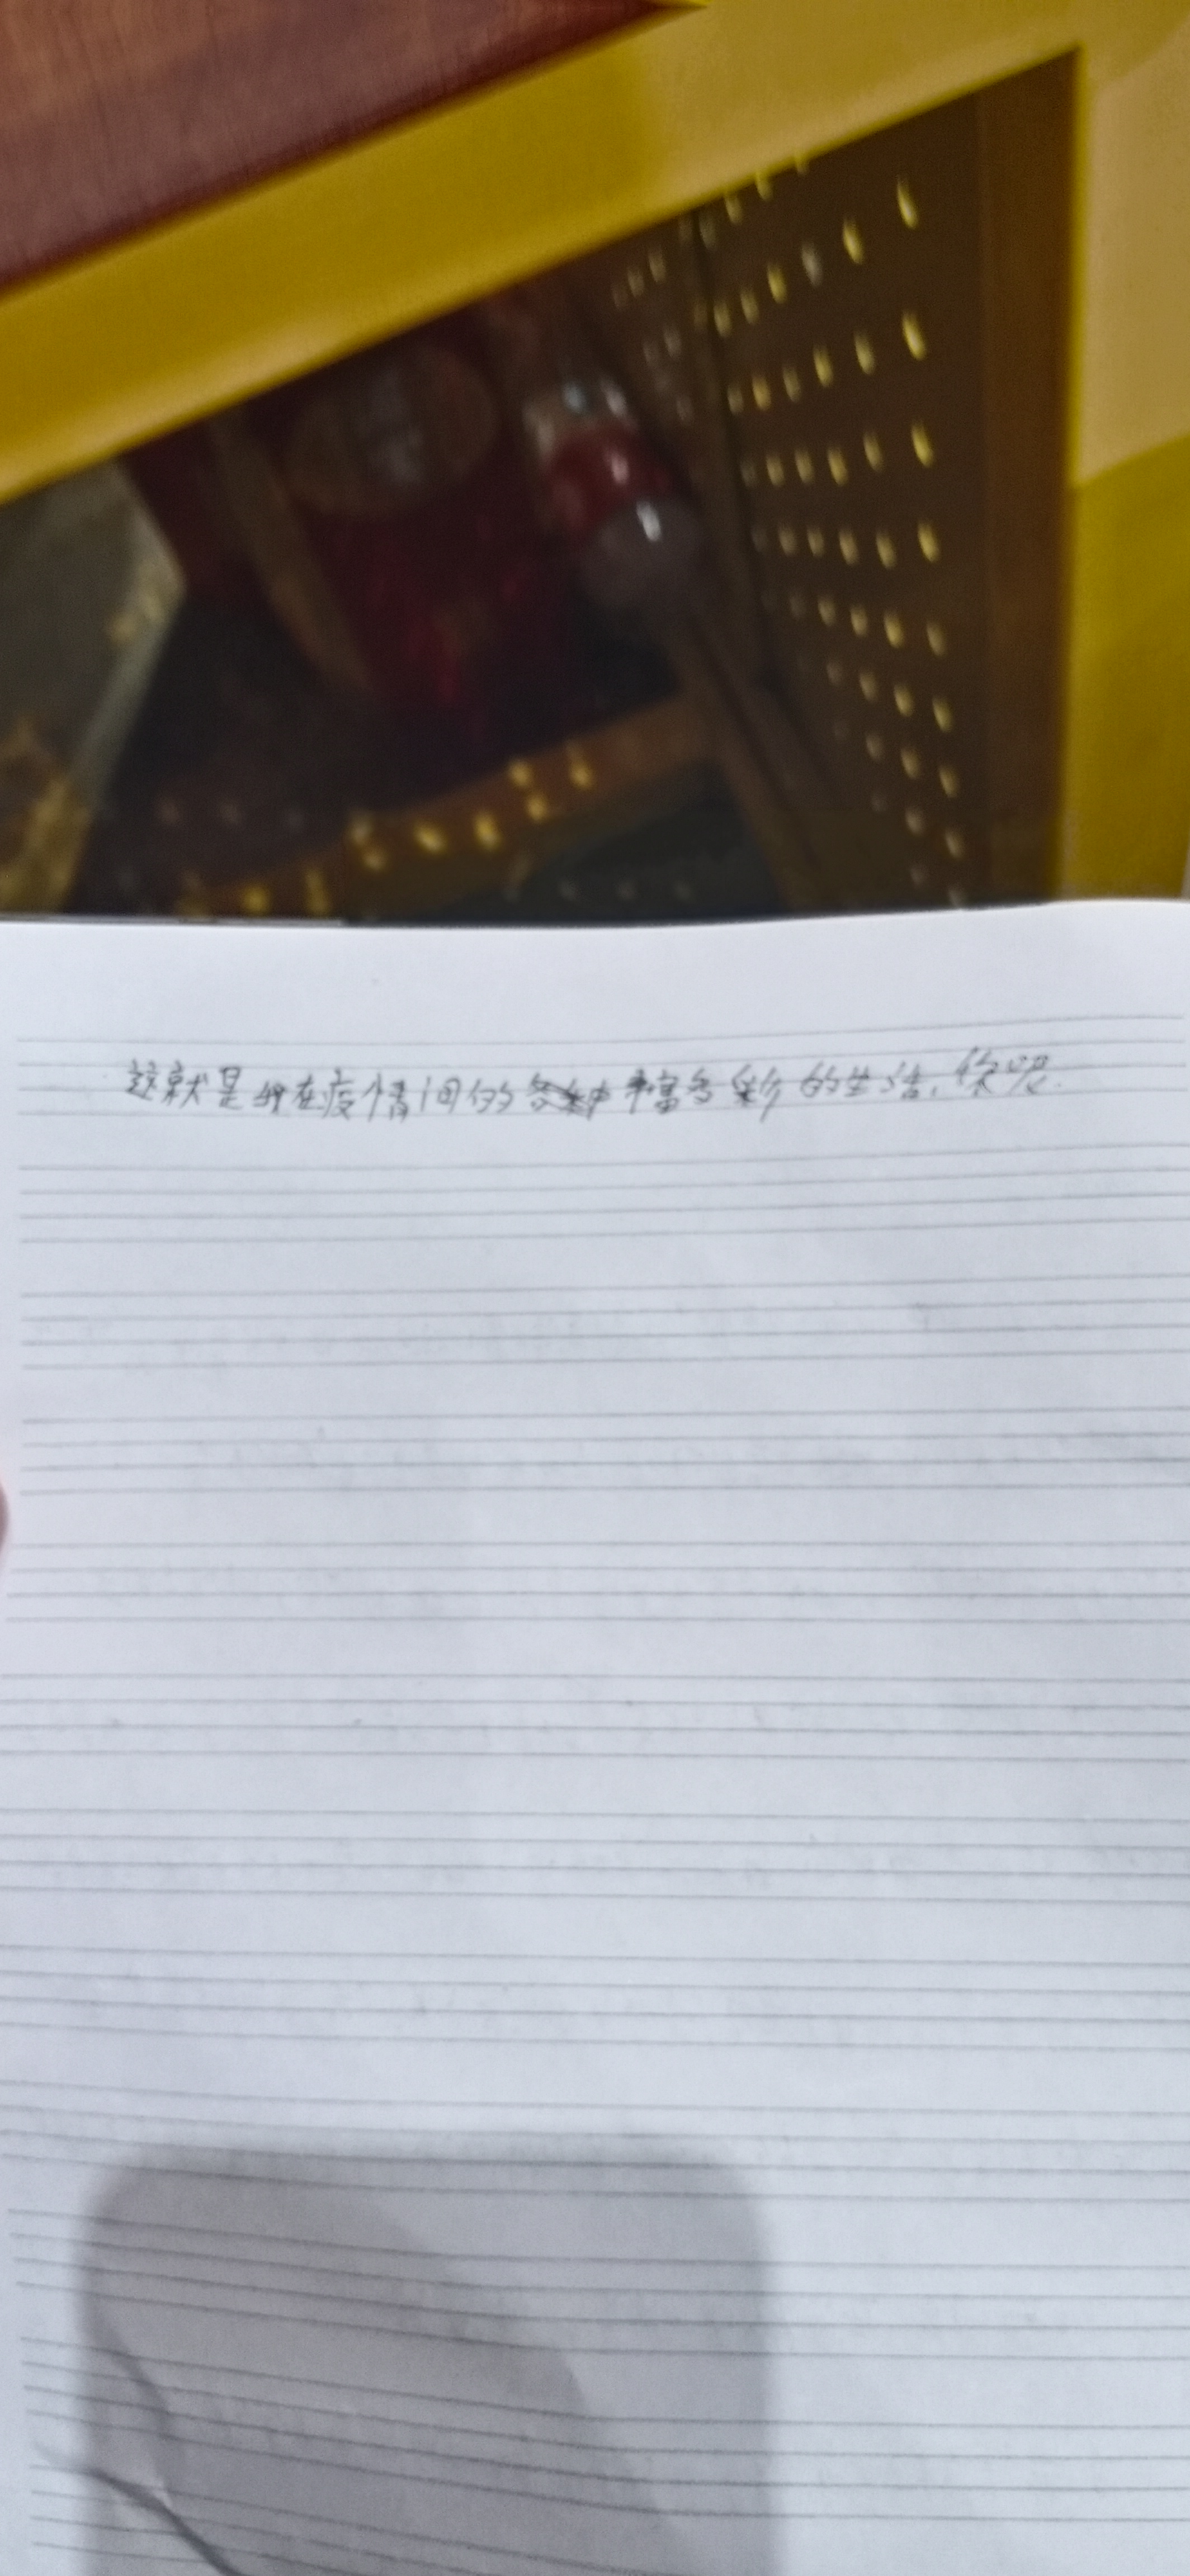 这就是我在疫情间的丰富多彩的生活,你呢.